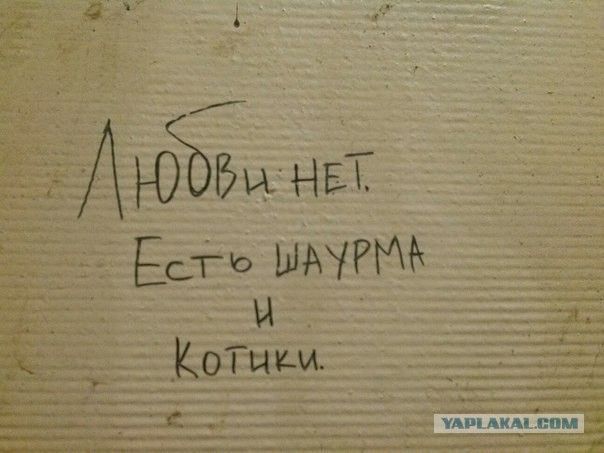 Любви нет.
Есть шаурма
и
Котики.
YAPLAKAL.COM